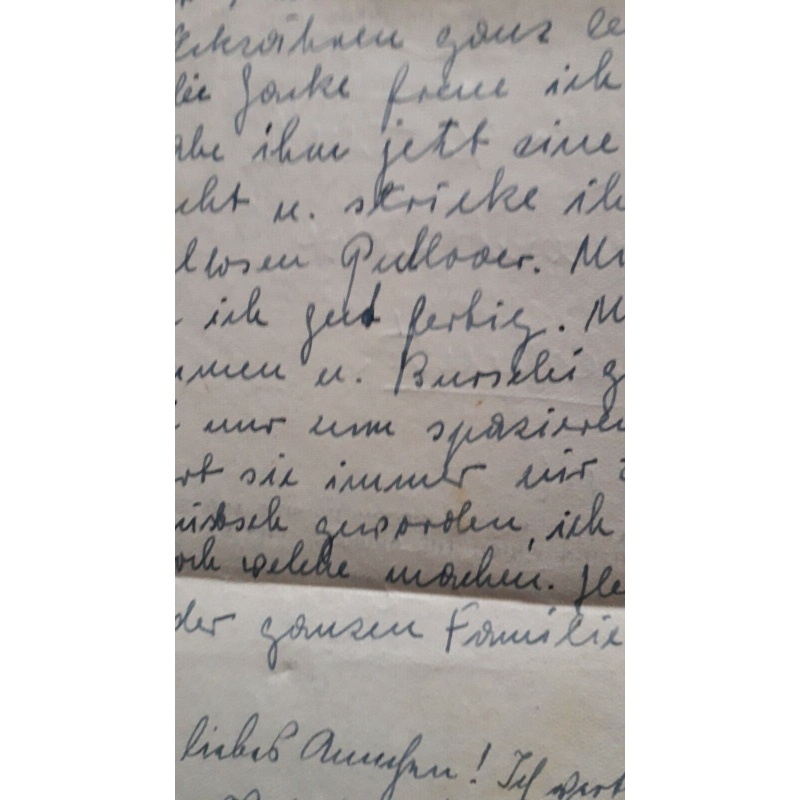 ganz le
die Jacke freue ich
abe ihm jetzt eine
cht u. stricke ih
llosen Pullover. Mi
ich gut fertig. M
mmen u. Burschi g
nur um spazieren
rt sie immer mir
geworden, ich
och welche machen. He
der ganzen Familie
liebes Annchen! Ich wert